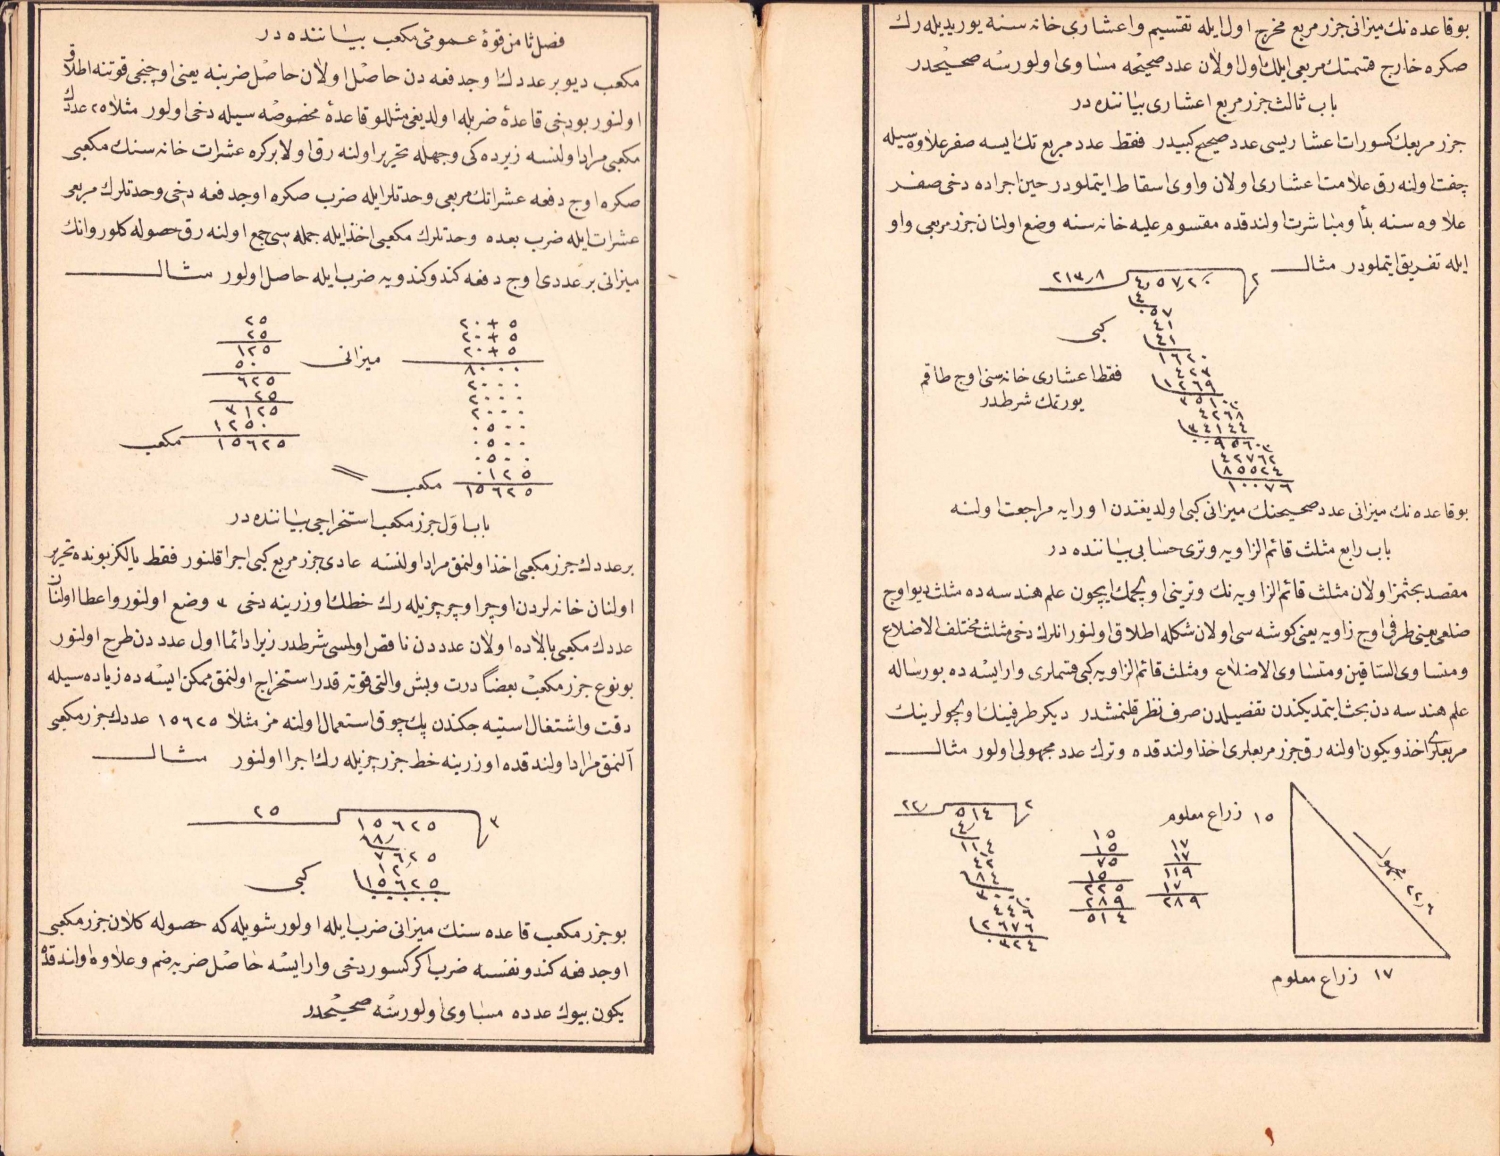 بو قاعده نك ميزانى جزر مربع مخرج اول ايله تقسيم واعشارى خانه سنه يوريديله رك
صكره خارج قسمتك مربعى ايلك اول اولان عدد صحيحه مساوى اولورسه صحيحدر
باب ثالث جزر مربع اعشارى بياننده در
جزر مربعك كسورات اعشاريسى عدد صحيح كبيدر فقط عدد مربع تك ايسه صفر علاوه سيله
چفت اولنه رق علامت اعشارى اولان واوى اسقاط ايتملودر حين اجراده دخى صفر
علاوه سنه بدأ ومباشرت اولندقده مقسوم عليه خانه سنه وضع اولنان جزر مربعى واو
ايله تفريق ايتملودر مثال
٢١٣٫٨ ٤٥٧٢٠ ٢
٤
٠٥٧
٤١
٤١ كبى
١٦٢٠
٤٢٣
١٢٦٩ فقط اعشارى خانه سنى اوچ طاقم
٣٥١٠٠ يورتمك شرطدر
٤٢٦٨
٣٤١٤٤
٠٠٩٥٦٠٣
٤٢٧٦٢
٨٥٥٢٤
١٠٠٧٦
بو قاعده نك ميزانى عدد صحيحنك ميزانى كبى اولديغندن اورايه مراجعت اولنه
باب رابع مثلث قائم الزاويه وترى حسابى بياننده در
مقصد بحثمز اولان مثلث قائم الزاويه نك وترينى اولچمك ايچون علم هندسه ده مثلث ديو اوچ
ضلعى يعنى طرفى اوچ زاويه يعنى كوشه سى اولان شكله اطلاق اولنور انلرك دخى مثلث مختلف الاضلاع
ومتساوى الساقين ومتساوى الاضلاع ومثلث قائم الزاويه كبى قسملرى وار ايسه ده بو رساله
علم هندسه دن بحث ايتمديكندن تفصيلدن صرف نظر قلنمشدر ديكر طرفينك اولچولرينك
مربعلرى اخذ ويكون اولنه رق جزر مربعلرى اخذ اولندقده وترك عدد مجهولى اولور مثال
١٥ زراع معلوم
٢٢٫٦ مجهول
١٧ زراع معلوم
١٧
١٧
١١٩
١٧
٢٨٩
١٥
١٥
٧٥
١٥
٢٢٥
٢٨٩
٥١٤
٢٢ ٥١٤ ٢
٤
١١٤
٤٢
٨٤
٣٠٠٠
٤٤٦
٢٦٧٦
٠٣٢٤
فصل ثامن قوۀ عمومى مكعب بياننده در
مكعب ديو بر عددك اوچ دفعه دن حاصل اولان حاصل ضربنه يعنى اوچنجى قوتنه اطلاق
اولنور بو دخى قاعدۀ ضربله اولديغى مثللو قاعدۀ مخصوصه سيله دخى اولور مثلا ٢٥ عددك
مكعبى مراد اولنسه زيرده كى وجهله تحرير اولنه رق اولا بر كره عشرات خانه سنك مكعبى
صكره اوچ دفعه عشراتك مربعى وحدتلر ايله ضرب صكره اوچ دفعه دخى وحدتلرك مربعى
عشرات ايله ضرب بعده وحدتلرك مكعبى اخذ ايله جمله سى جمع اولنه رق حصوله كلور وانك
ميزانى بر عددى اوچ دفعه كندو كندويه ضرب ايله حاصل اولور مثال
٢٠+٥
٢٠+٥
٢٠+٥
٨٠٠٠
٢٠٠٠
٢٠٠٠
٢٠٠٠
٠٥٠٠
٠٥٠٠
٠٥٠٠
٠١٢٥
١٥٦٢٥ مكعب
ميزانى
٢٥
٢٥
١٢٥
٥٠
٦٢٥
٢٥
٣١٢٥
١٢٥٠
١٥٦٢٥ مكعب
باب اول جزر مكعب استخراجى بياننده در
بر عددك جزر مكعبى اخذ اولنمق مراد اولنسه عادى جزر مربع كبى اجرا قلنور فقط يالكز بونده تحرير
اولنان خانه لردن اوچر اوچر چزيله رك خطك اوزرينه دخى ٣ وضع اولنور واعطا اولنان
عددك مكعبى بالاده اولان عدددن ناقص اولمسى شرطدر زيرا دائما اول عدددن طرح اولنور
بو نوع جزر مكعب بعضا درت وبش والتى قوته قدر استخراج اولنمق ممكن ايسه ده زياده سيله
دقت واشتغال استيه جكندن پك چوق استعمال اولنه مز مثلا ١٥٦٢٥ عددك جزر مكعبى
آلنمق مراد اولندقده اوزرينه خط جزر چزيله رك اجرا اولنور مثال
٢٥ ١٥٦٢٥ ٣
٨
٧٦٢٥
١٢
١٥٦٢٥ كبى
بو جزر مكعب قاعده سنك ميزانى ضرب ايله اولور شويله كه حصوله كلان جزر مكعبى
اوچ دفعه كندو نفسنه ضرب اكر كسور دخى وار ايسه حاصل ضربه ضم وعلاوه اولندقده
يكون بيوك عدده مساوى اولورسه صحيحدر